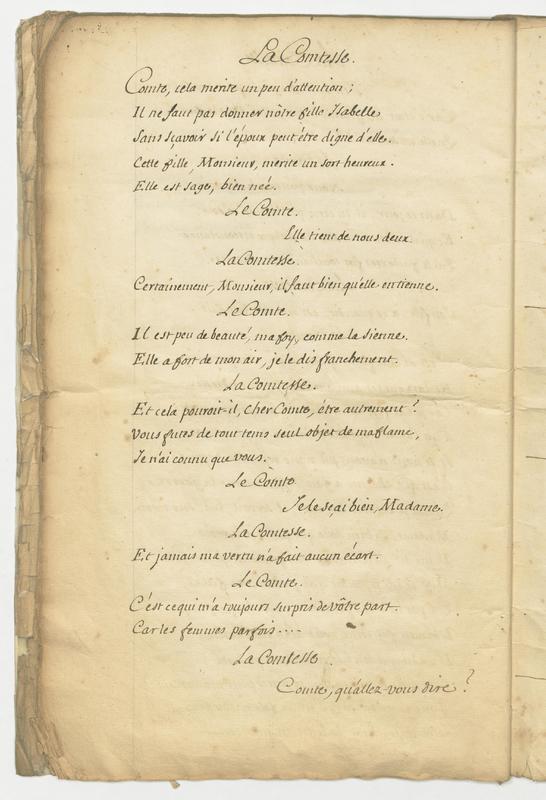 La Comtesse.
Comte, cela merite un peu d'attention ;
Il ne faut pas donner nôtre fille Isabelle
Sans sçavoir si l'époux peut être digne d'elle.
Cette fille, Monsieur, merite un sort heureux.
Elle est sage, bien née.
Le Comte.
Elle tient de nous deux.
La Comtesse.
Certainement, Monsieur, il faut bien qu'elle en tienne.
Le Comte.
Il est peu de beauté, ma foy, comme la sienne.
Elle a fort de mon air, je le dis franchement.
La Comtesse.
Et cela pouroit-il, cher Comte, être autrement ?
Vous futes de tout tems seul objet de ma flame,
Je n'ai connu que vous.
Le Comte
Je le sçai bien, Madame.
La Comtesse.
Et jamais ma vertu n'a fait aucun écart.
Le Comte.
C'est ce qui m'a toujours surpris de vôtre part.
Car les femmes parfois....
La Comtesse.
Comte, qu'allez vous dire ?